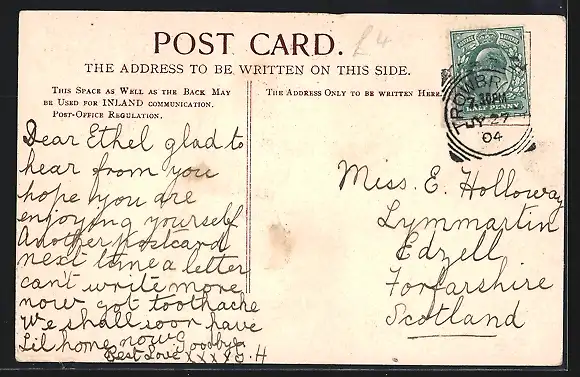 POST CARD.
£4
THE ADDRESS TO BE WRITTEN ON THIS SIDE.
This Space as Well as the Back May
be Used for INLAND communication.
Post-Office Regulation.
The Address Only to be written Here
TROWBR
7.30PM
SY 27
04
HALFPENNY
Dear Ethel glad to
hear from you
hope you are
enjoying yourself
Another postcard
next time a letter
can't write more
now got toothache
We shall soon have
Lil home now Goodbye
Best Love xxxxx H
Miss. E. Holloway
Lymmartin
Edzell
Forfarshire
Scotland